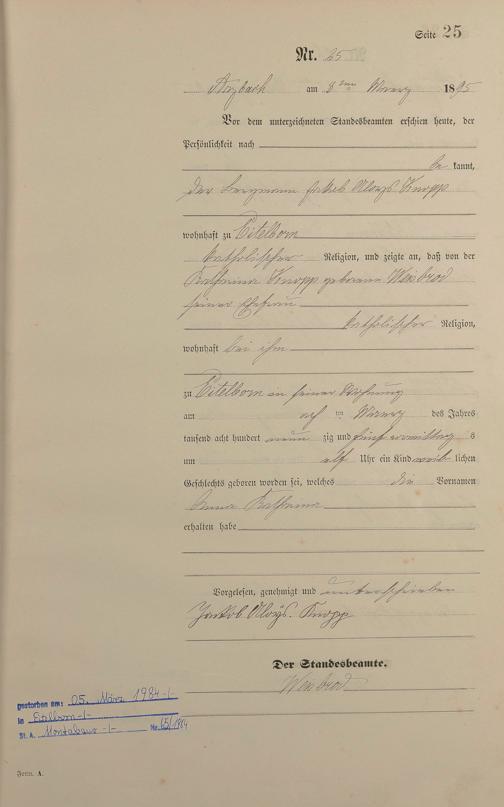 Seite 25
Nr. 25
Arzbach am 8ten Maerz 1895
Vor dem unterzeichneten Standesbeamten erschien heute, der
Persönlichkeit nach
be kannt,
der Bergmann Jakob Aloys Knopp
wohnhaft zu Eitelborn
katholischer Religion, und zeigte an, daß von der
Katharina Knopp geborene Weisbrod
seiner Ehefrau
katholischer Religion,
wohnhaft bei ihm
zu Eitelborn in seiner Wohnung
am Maerz des Jahres
tausend acht hundert neun zig und fünf vormittag s
um elf Uhr ein Kind weib lichen
Geschlechts geboren worden sei, welches die Vornamen
Anna Katharina
erhalten habe
Vorgelesen, genehmigt und unterschrieben
Jackob Aloys. Knopp
Der Standesbeamte.
Weisbrod
gestorben am: 05. März 1984 -/-
in -/-
St. A. Montabaur -/- Nr. 65/1984
Form. A.